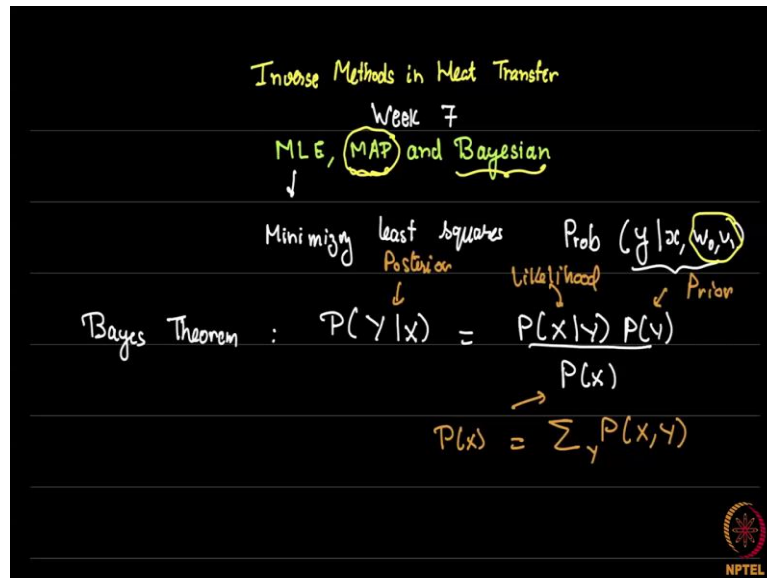 Inverse Methods in Heat Transfer
Week 7
MLE, MAP and Bayesian
Minimizng least squares Prob (y|x, w₀, w₁)
Posterior Likelihood Prior
Bayes Theorem : P(Y|X) = P(X|Y) P(Y)
P(X)
P(X) = Σ_Y P(X,Y)
NPTEL